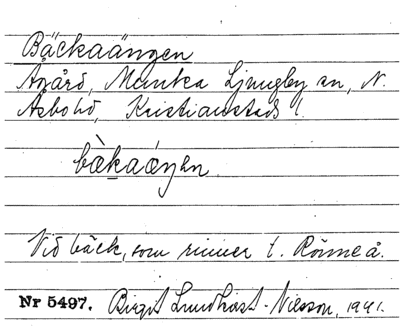 Bäckaängen
Ågård, Munka Ljungby sn, N.
Åsbo hd, Kristianstads l.
bæ̀kaæŋən
Vid bäck, som rinner t. Rönneå.
Nr 5497. Birgit Lundkvist-Nilsson, 1941.